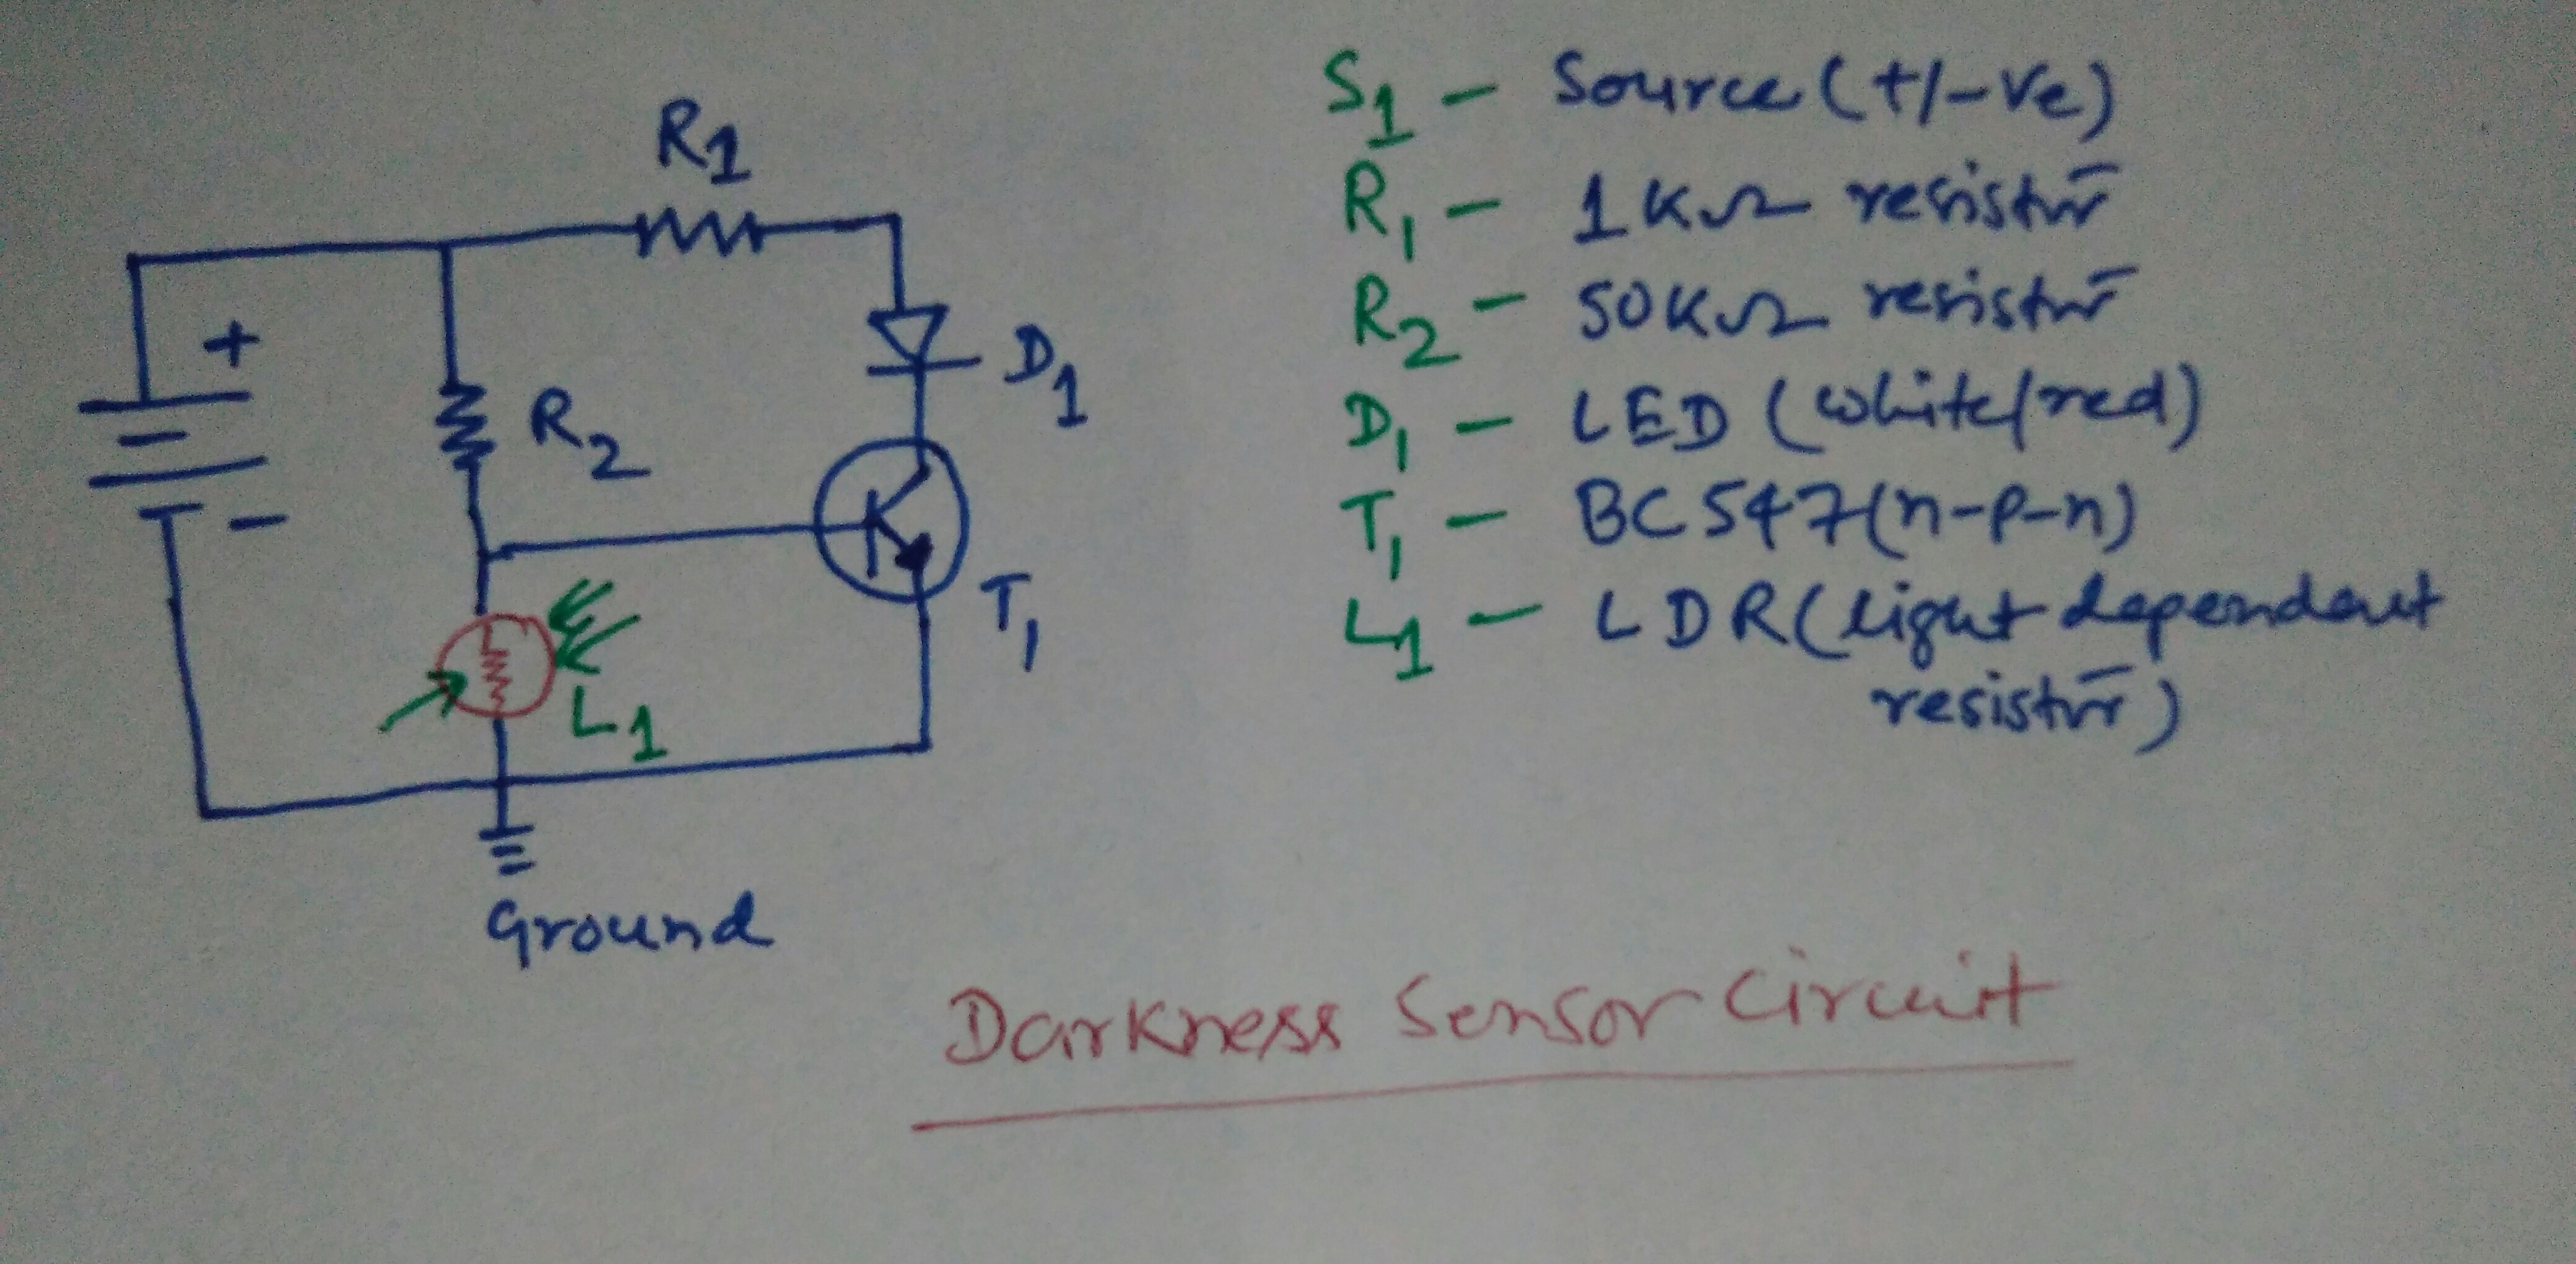 R1
+
R2
D1
-
T1
L1
Ground
S1 - Source (+/-ve)
R1 - 1KΩ resistor
R2 - 50KΩ resistor
D1 - LED (white/red)
T1 - BC547(n-p-n)
L1 - LDR (light dependent
resistor)
Darkness Sensor Circuit